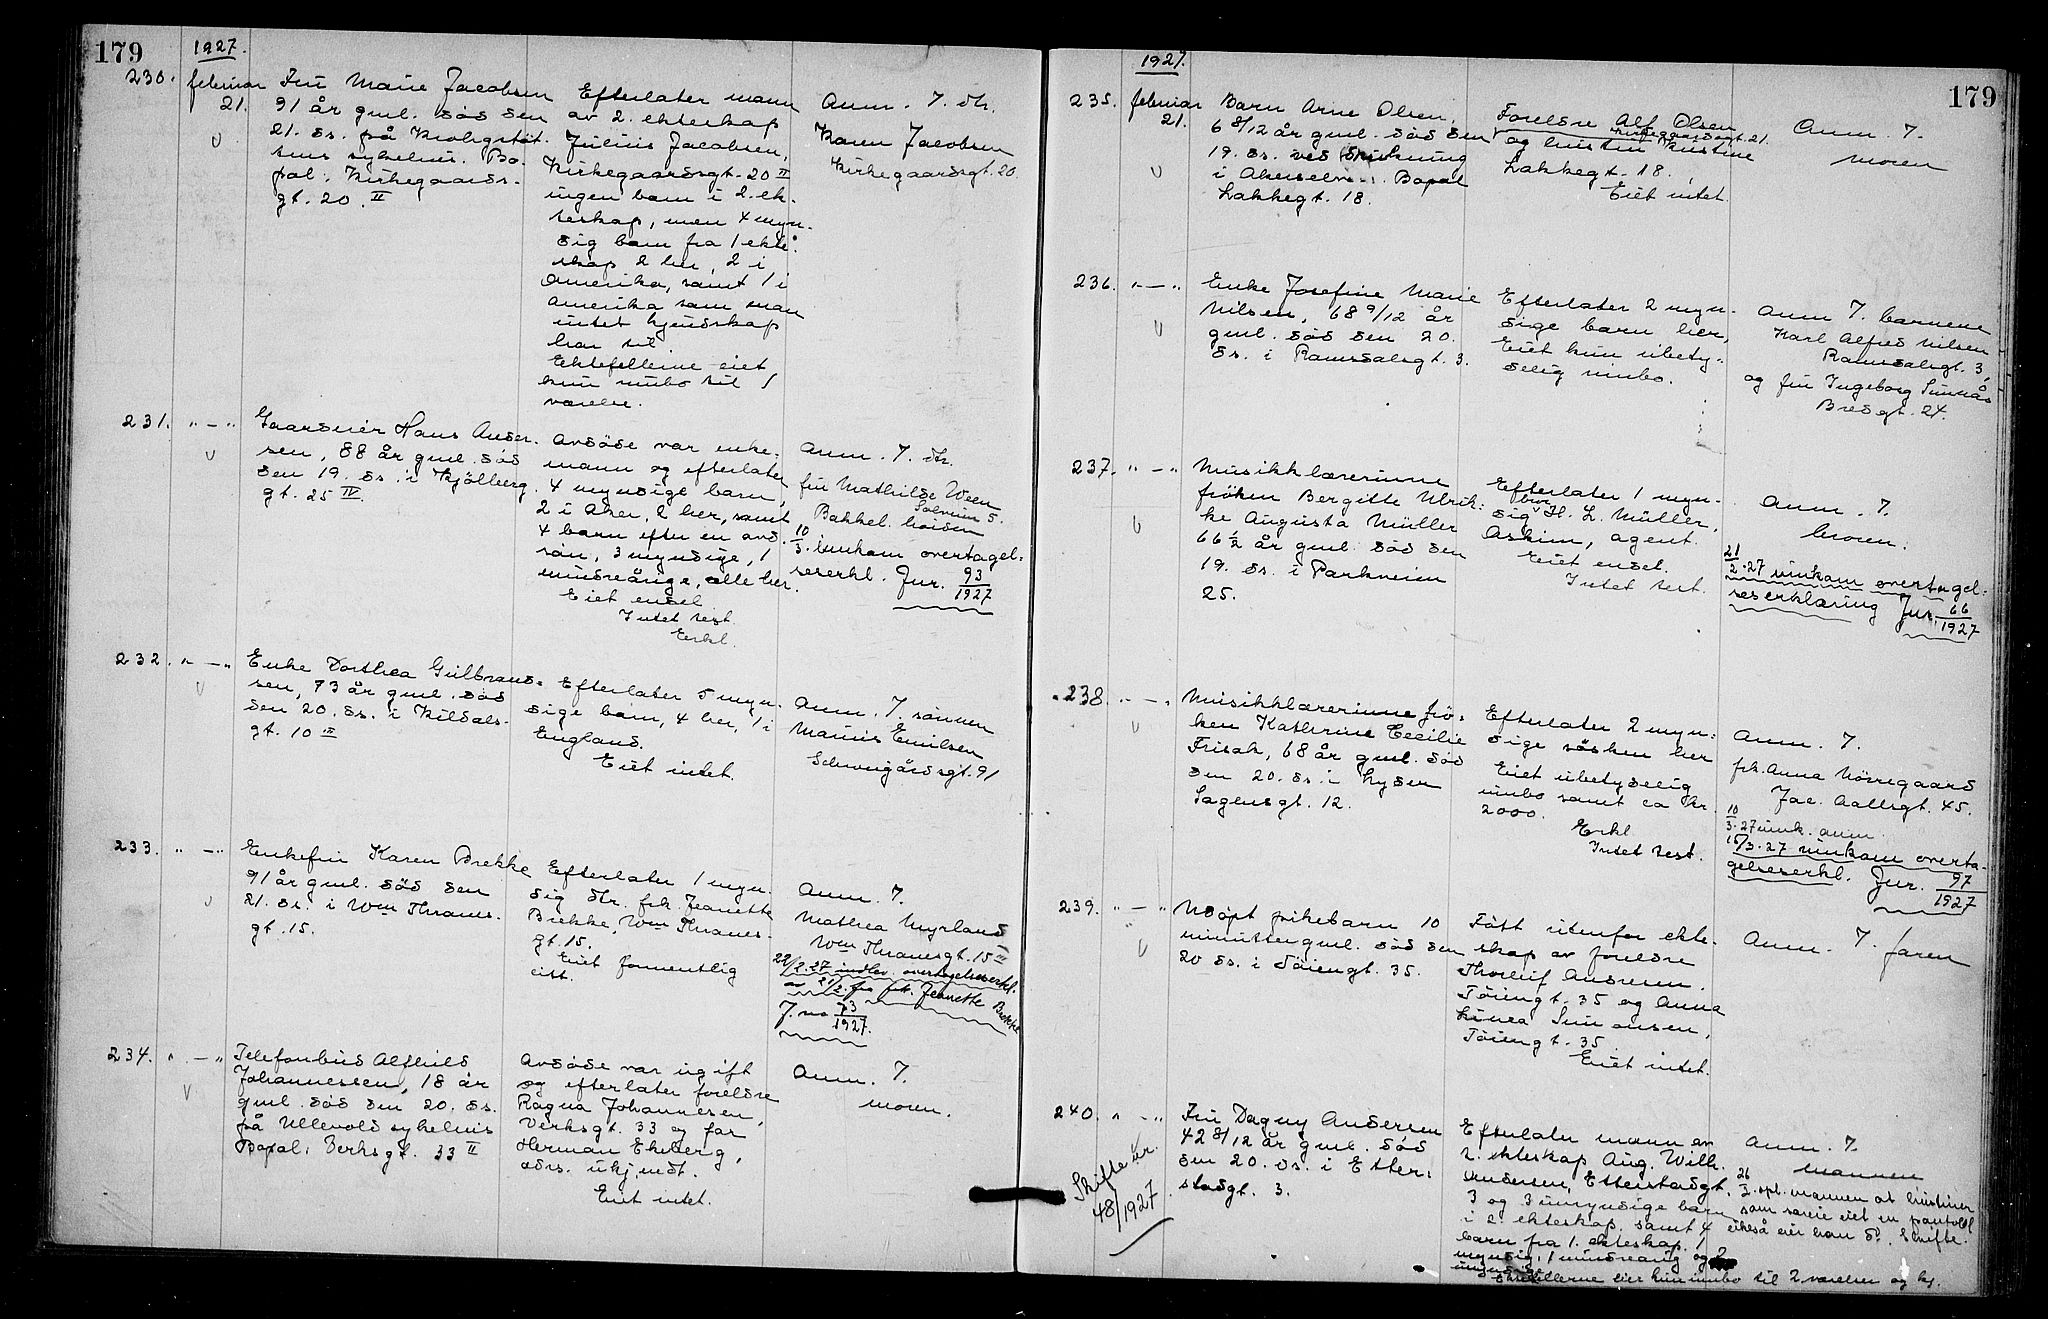 179
1927.
230. februar 21.
Fru Marie Jacobsen
91 år gml. död den
21. ds. på Krohgstöt-
tens sykehus. Bo-
pal: Kirkegaards-
gt. 20. II
Efterlater mann
av 2. ekteskap
Julius Jacobsen,
Kirkegaardsgt. 20 II
ingen barn i 2. ek-
teskap, men 4 myn-
dig barn fra 1 ekte-
skap 2 her, 2 i
Amerika, samt 1 i
Amerika som man
intet kjendskap
har til
Ektefellerne eiet
kun inbo til 1
værelse.
Anm. 7. dtr.
Karen Jacobsen
Kirkegaardsgt. 20.
231. " — "
Gaardeier Hans Ander-
sen, 88 år gml. död
den 19. ds. i Kjölberg-
gt. 25 IV.
Avdöde var enke-
mann og efterlater
4 myndige barn,
2 i Aker, 2 her, samt
4 barn efter en avd.
sön, 3 myndige, 1
mindreårige, alle her.
Eiet endel
Intet test.
Erkl.
Anm. 7. dtr.
fru Mathilde Ween
Solveien 5.
Bakkel. höiden
10/3. innkom overtagel-
seserkl. Jur. 93/1927
232. " — "
Enke Dorthea Gulbrand-
sen, 73 år gml. död
den 20. ds. i Kildals-
gt. 10 III
Efterlater 5 myn-
dige barn, 4 her, 1 i
England.
Eiet intet.
Anm. 7. sönnen
Mauris Emilsen
Schweigårdsgt. 91
233. " — "
Enkefru Karen Brekke
91 år gml. död den
21. ds. i Wm Thranes-
gt. 15.
Efterlater 1 myn-
dig dtr. frk. Jeanette
Brekke, Wm Thranes-
gt. 15.
Eiet formentlig
litt.
Anm. 7.
Mathea Myrland
Wm Thranesgt. 15 III
22/2.27 indlev. overtagelseserkl.
av 21/2. fra frk. Jeanette Brekke
J. no 73/1927.
234. " — "
Telefonbud Alfhild
Johannessen, 18 år
gml. död den 20. ds.
på Ullevold sykehus
Bopal: Verksgt. 33 II
Avdöde var ugift
og efterlater foreldre
Ragna Johannesen,
Verksgt. 33 og far
Herman Ekeberg,
adrs. ukjendt.
Eiet intet.
Anm. 7.
moren.
1927.
179
235. februar 21.
Barn Arne Olsen,
6 8/12 år gml. död den
19. ds. ved drukning
i Akerselven. Bopal
Lakkegt. 18.
Foreldre Alf Olsen
Kirkegaardsgt. 21.
og hustru Kristine
Lakkegt. 18.
Eiet intet.
Anm. 7.
moren
236. " — "
Enke Josefine Marie
Nilsen, 68 9/12 år
gml. död den 20.
ds. i Ramsdalsgt. 3.
Efterlater 2 myn-
dige barn her,
Eiet kun ubety-
delig innbo.
Anm. 7. barnene
Karl Alfred Nilsen
Ramsdalsgt. 3,
og fru Ingeborg Sunnås
Bredgt. 24.
237. " — "
Musikklærerinne
fröken Bergitte Ulrik-
ke Augusta Müller
66 1/2 år gml. död den
19. ds. i Parkveien
25.
Efterlater 1 myn-
dig bror H. L. Müller,
Askim, agent.
Eiet endel.
Intet test.
Anm. 7.
broren.
21/2.27 innkom overtagel-
seserklæring Jur. 66/1927
238. " — "
Musikklærerinne frö-
ken Kathrine Cecilie
Frisak, 68 år gml. död
den 20. ds. i Lyder
Sagensgt. 12.
Efterlater 2 myn-
dige sösken her
Eiet ubetydelig
innbo samt ca kr.
2000.
Erkl
Intet test.
Anm. 7.
frk. Anna Nörregaard
Jac. Aallsgt. 45.
10/3.27 innk. anm.
15/3.27 innkom overta-
gelseserkl. Jur. 97/1927
239. " — "
Udöpt pikebarn 10
minutter gml. död den
20 ds. i Töiengt. 35.
Födt utenfor ekte-
skap av foreldre
Thorleif Andresen.
Töiengt. 35 og Anna
Linea Simonsen,
Töiengt. 35
Eiet intet.
Anm. 7. faren
240. " — "
Skifte kr.
48/1927
Fru Dagny Andersen
42 8/12 år gml. död
den 20. ds. i Etter-
stadgt. 3.
Efterlater mann av
2. ekteskap Aug. Wilh.
Andersen, Etterstadgt.
3 og 3 umyndige barn
i 2. ekteskap, samt 4
barn fra 1. ekteskap, 1
myndig, 1 mindreårig og 2
umyndige
Ektefellerne eier kun innbo til 2 værelser og kj.
Anm. 7.
mannen
26/2. opl. mannen at hustruen
som særeie eiet en pantobl
likeså eier han d°. Skifte.